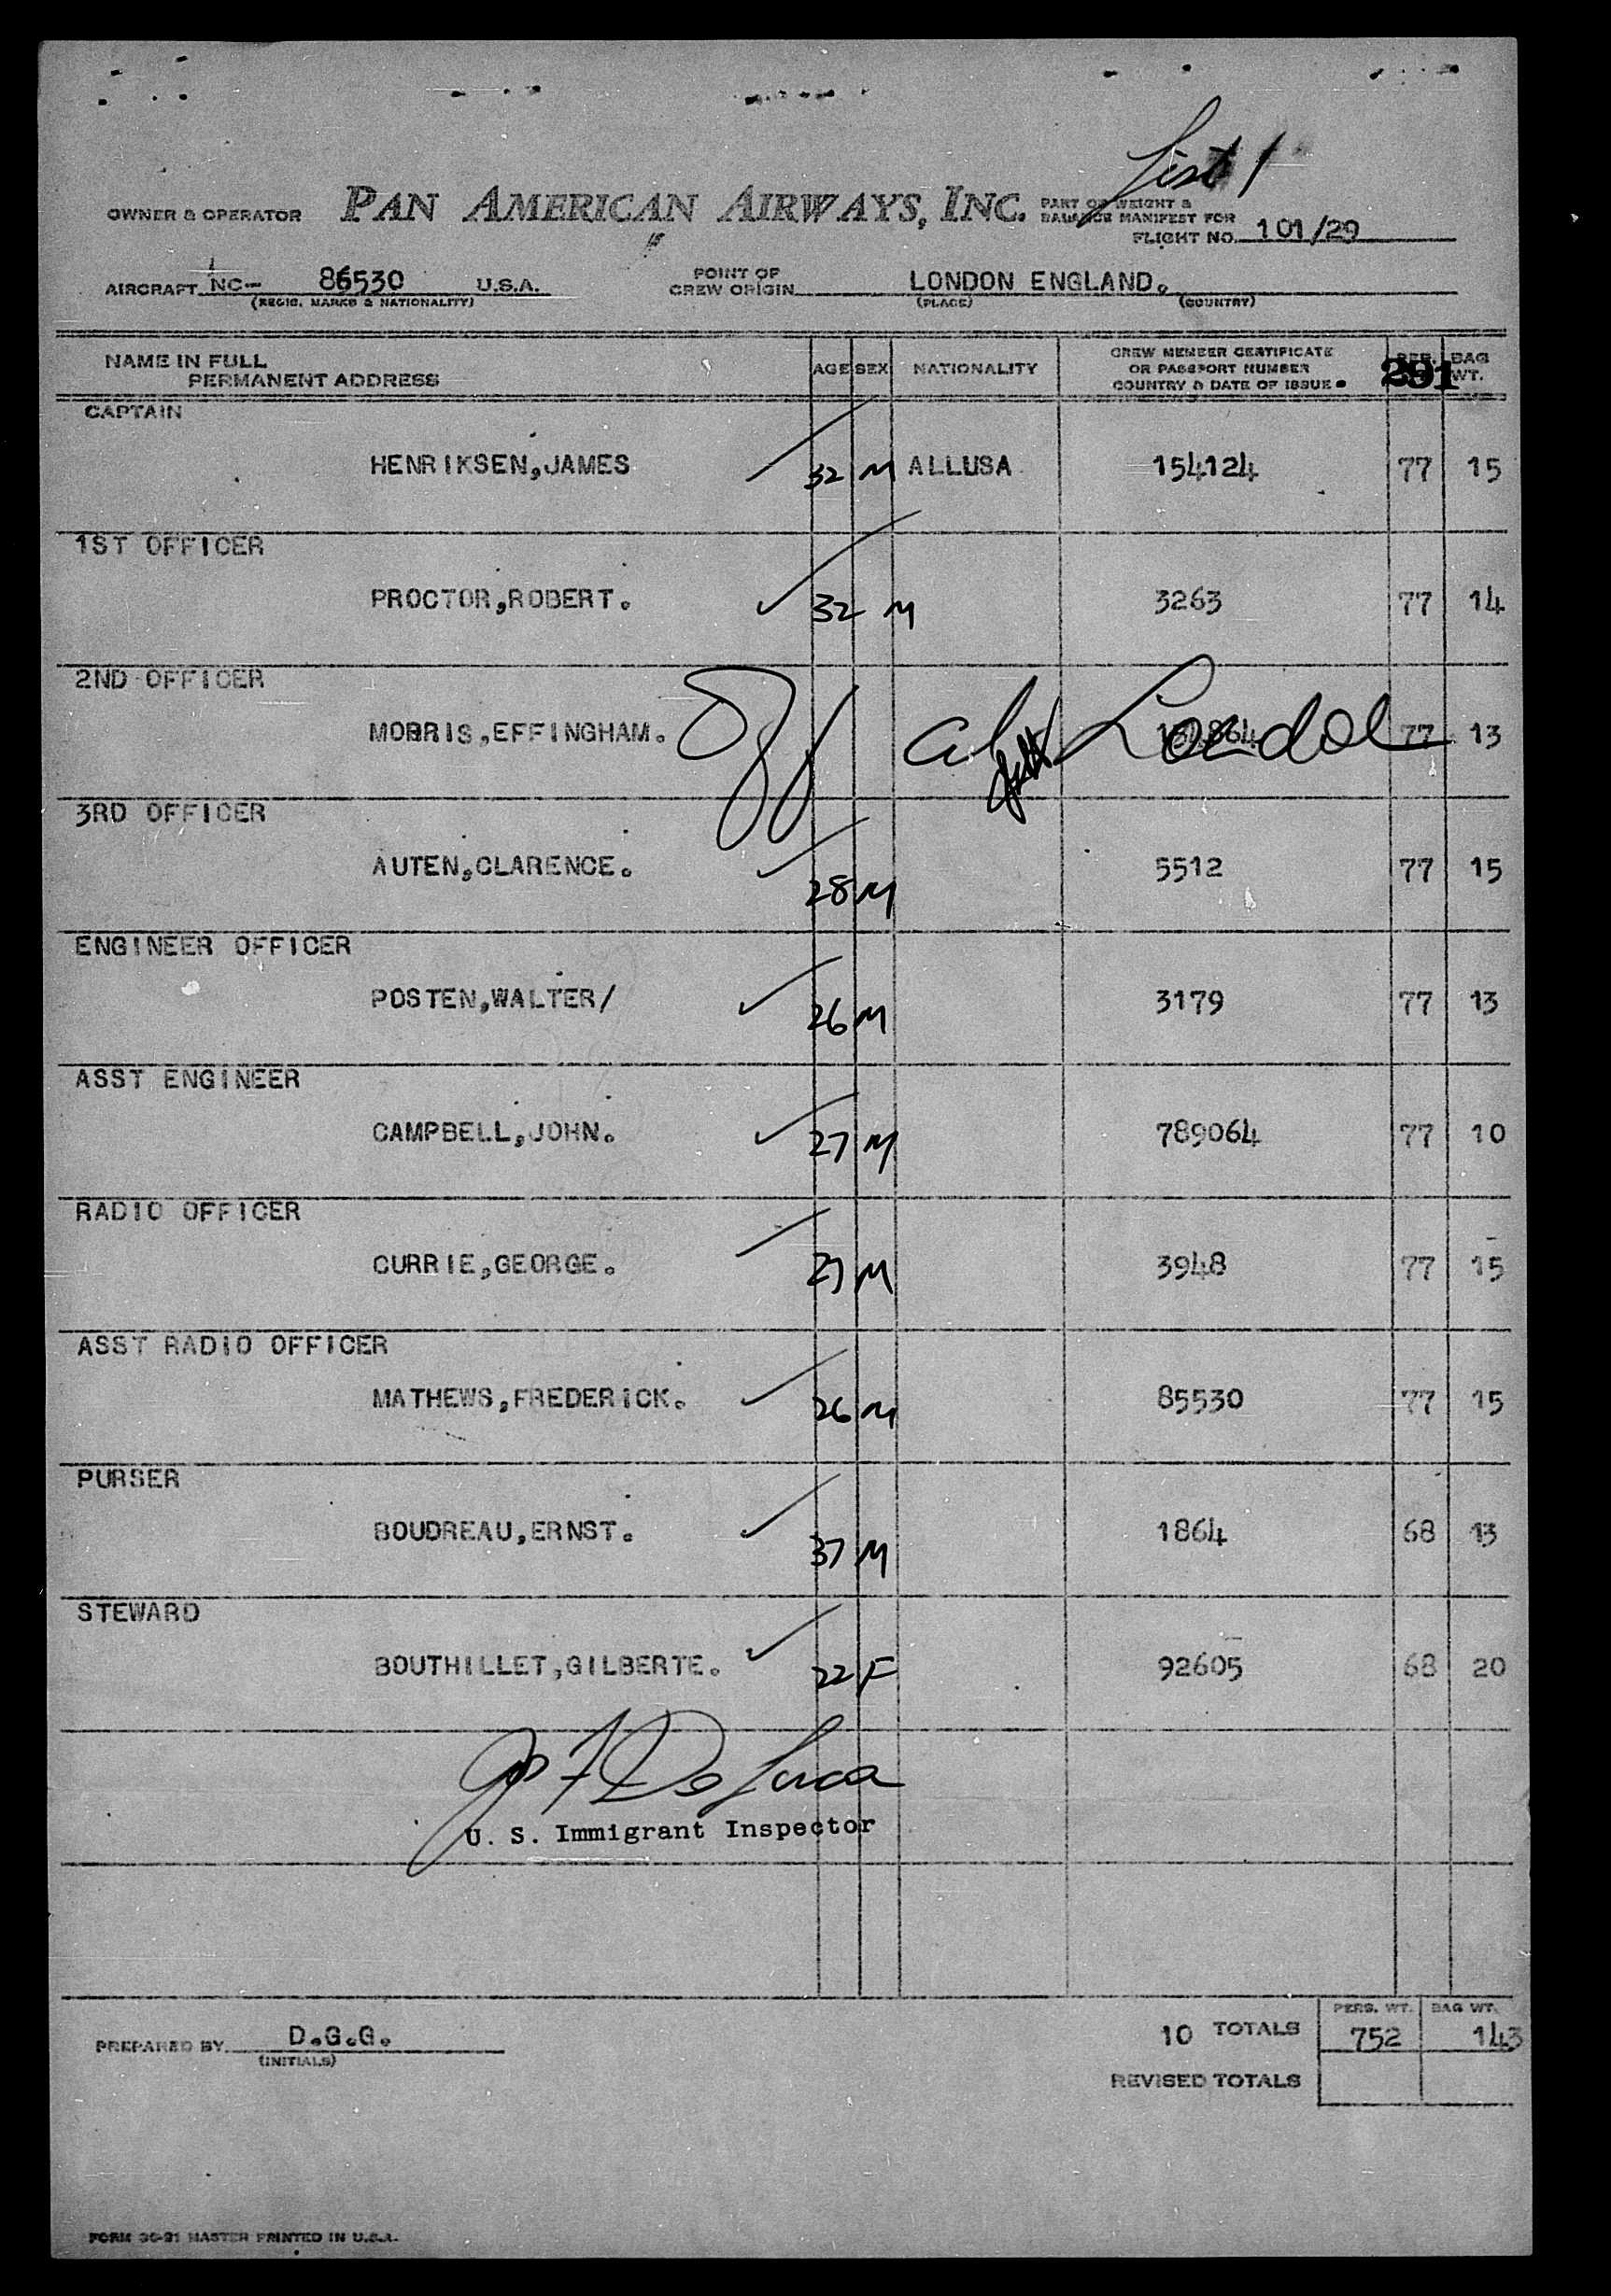 List 1
OWNER & OPERATOR PAN AMERICAN AIRWAYS, INC. PART OF WEIGHT &
BALANCE MANIFEST FOR
FLIGHT NO. 101/29
AIRCRAFT NC- 86530 U.S.A. POINT OF CREW ORIGIN LONDON ENGLAND.
(REGIS. MARKS & NATIONALITY) (PLACE) (COUNTRY)
NAME IN FULL
PERMANENT ADDRESS AGE SEX NATIONALITY CREW MEMBER CERTIFICATE OR PASSPORT NUMBER COUNTRY & DATE OF ISSUE PER. BAG WT.
291
CAPTAIN
HENRIKSEN,JAMES 32 M ALLUSA 154124 77 15
1ST OFFICER
PROCTOR,ROBERT. 32 M 3263 77 14
2ND OFFICER
MORRIS,EFFINGHAM. 77 13
3RD OFFICER
AUTEN,CLARENCE. 28 M 5512 77 15
ENGINEER OFFICER
POSTEN,WALTER/ 26 M 3179 77 13
ASST ENGINEER
CAMPBELL,JOHN. 27 M 789064 77 10
RADIO OFFICER
CURRIE,GEORGE. M 3948 77 15
ASST RADIO OFFICER
MATHEWS,FREDERICK. 26 M 85530 77 15
PURSER
BOUDREAU,ERNST. 37 M 1864 68 13
STEWARD
BOUTHILLET,GILBERTE. 22 F 92605 68 20
Jos F De Luca
U. S. Immigrant Inspector
PERS. WT. BAG WT.
PREPARED BY D.G.G. 10 TOTALS 752 143
(INITIALS)
REVISED TOTALS
FORM 36-21 MASTER PRINTED IN U.S.A.